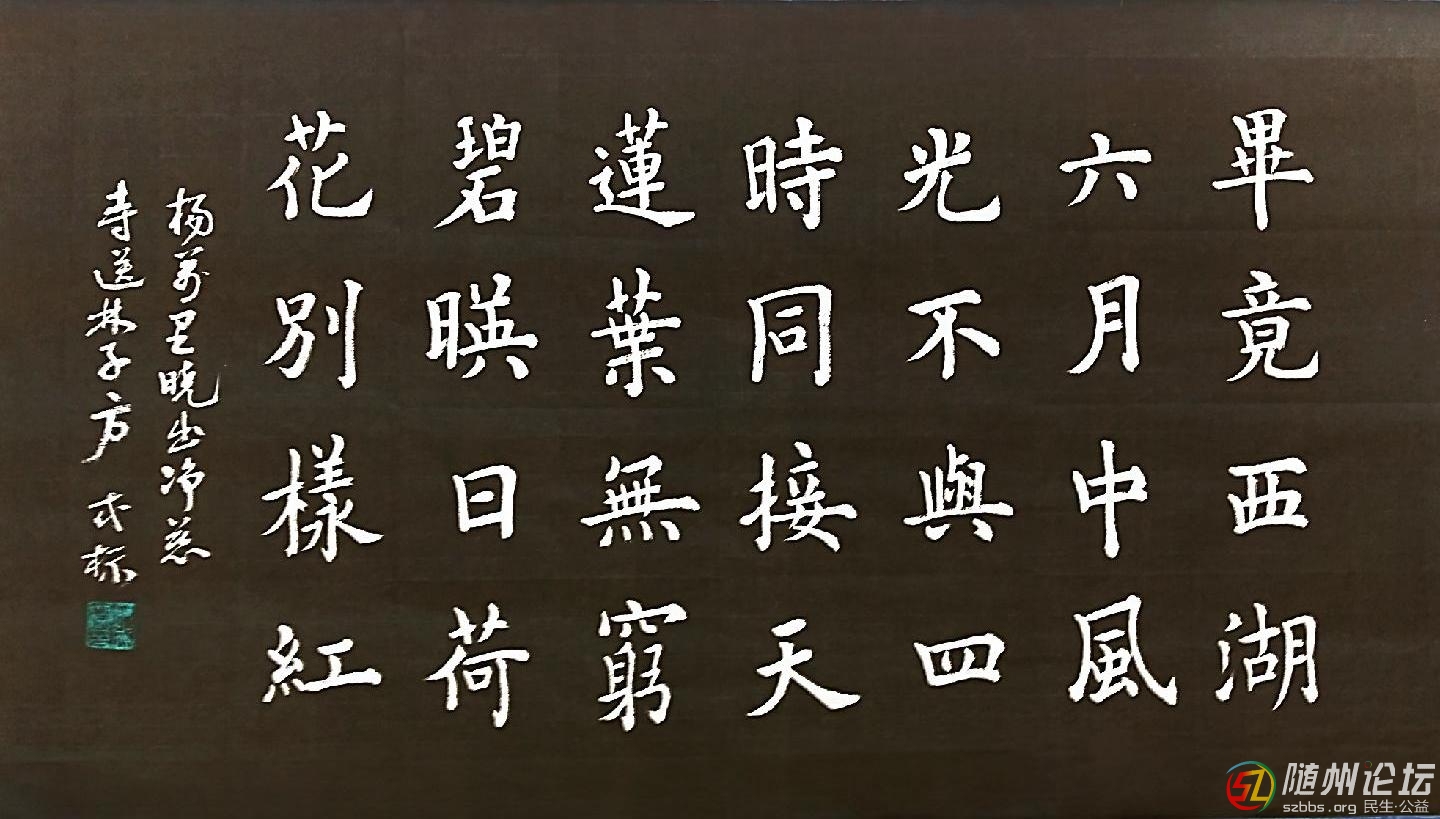 畢竟西湖
六月中風
光不與四
時同接天
蓮葉無窮
碧暎日荷
花別樣紅
杨萬里晓出净慈
寺送林子方
随州论坛
szbbs.org 民生·公益